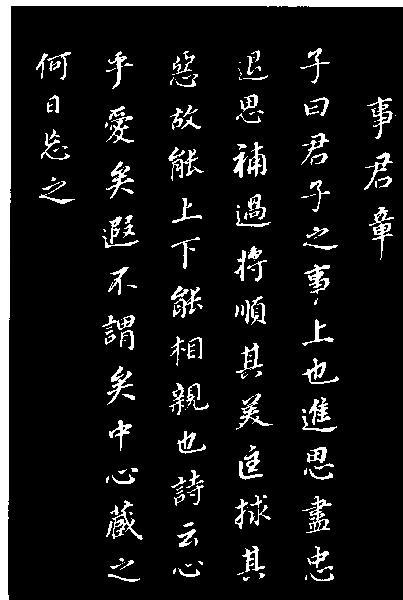 事君章
子曰君子之事上也進思盡忠
退思補過將順其美匡捄其
惡故能上下能相親也詩云心
乎愛矣遐不謂矣中心藏之
何日忘之